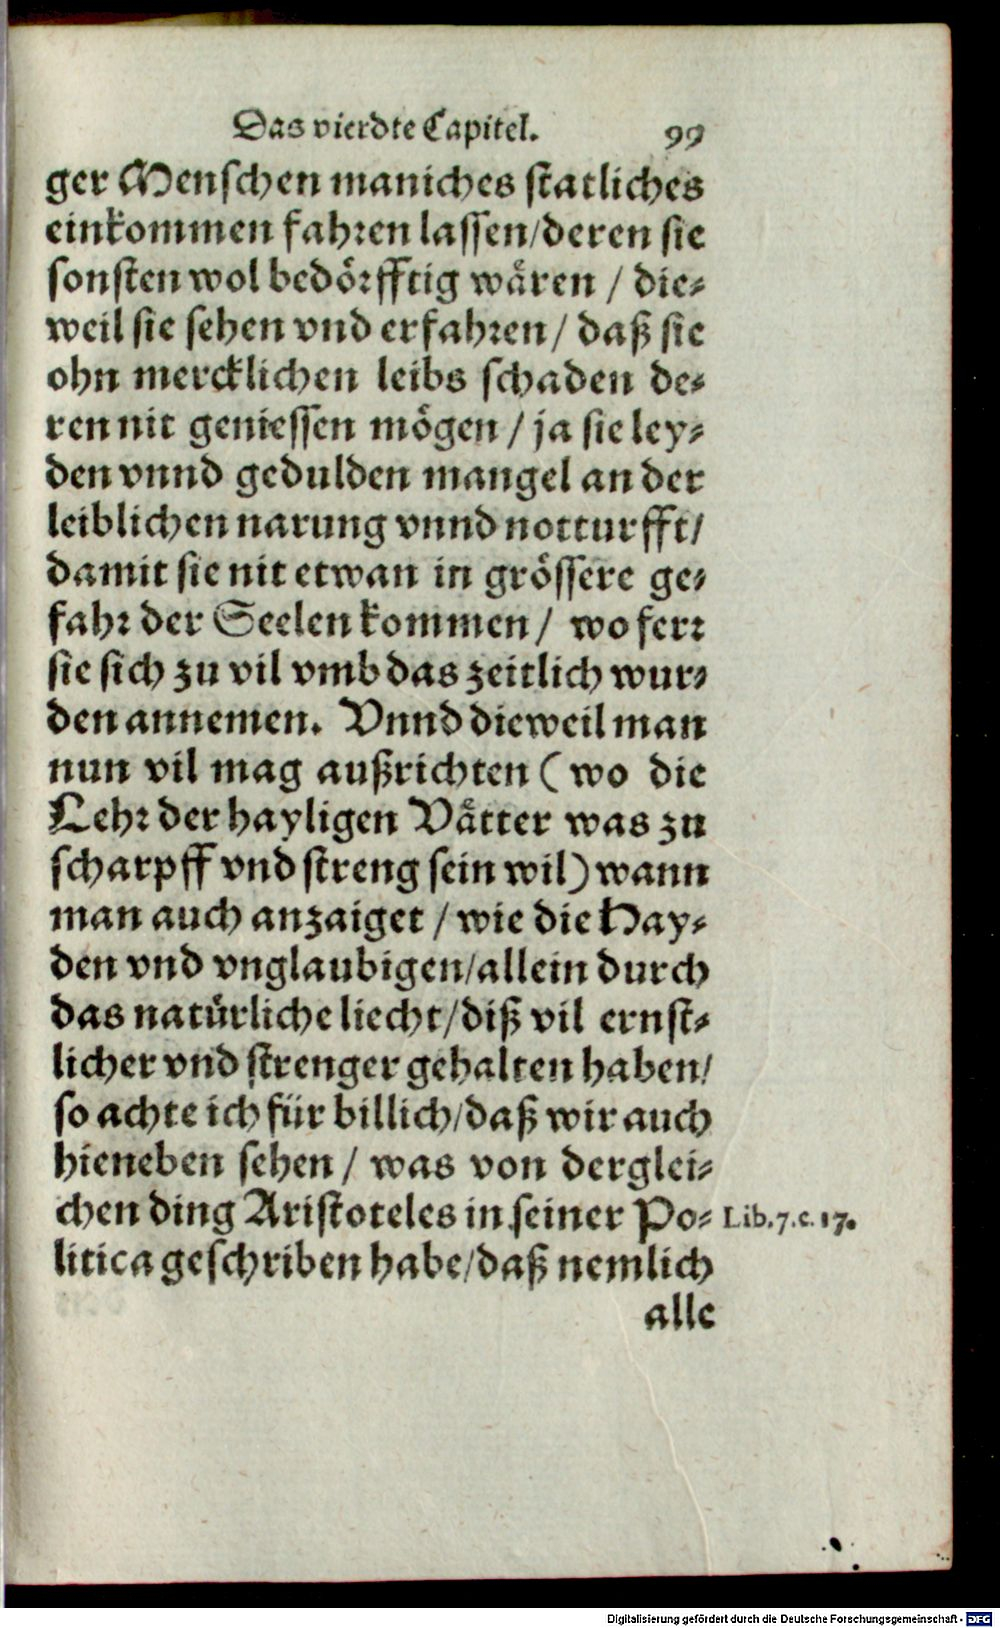 Das vierdte Capitel. 99
ger Menschen maniches statliches
einkommen fahren lassen/deren sie
sonsten wol bedörfftig wären / die-
weil sie sehen vnd erfahren/ daß sie
ohn mercklichen leibs schaden de-
ren nit geniessen mögen / ja sie ley-
den vnnd gedulden mangel an der
leiblichen narung vnnd notturfft/
damit sie nit etwan in grössere ge-
fahr der Seelen kommen/ wo ferr
sie sich zu vil vmb das zeitlich wur-
den annemen. Vnnd dieweil man
nun vil mag außrichten ( wo die
Lehr der hayligen Vätter was zu
scharpff vnd streng sein wil) wann
man auch anzaiget / wie die Hay-
den vnd vnglaubigen/allein durch
das natürliche liecht/diß vil ernst-
licher vnd strenger gehalten haben/
so achte ich für billich/daß wir auch
hieneben sehen / was von derglei-
chen ding Aristoteles in seiner Po- Lib.7.c.17.
litica geschriben habe/daß nemlich
alle
Digitalisierung gefördert durch die Deutsche Forschungsgemeinschaft - DFG